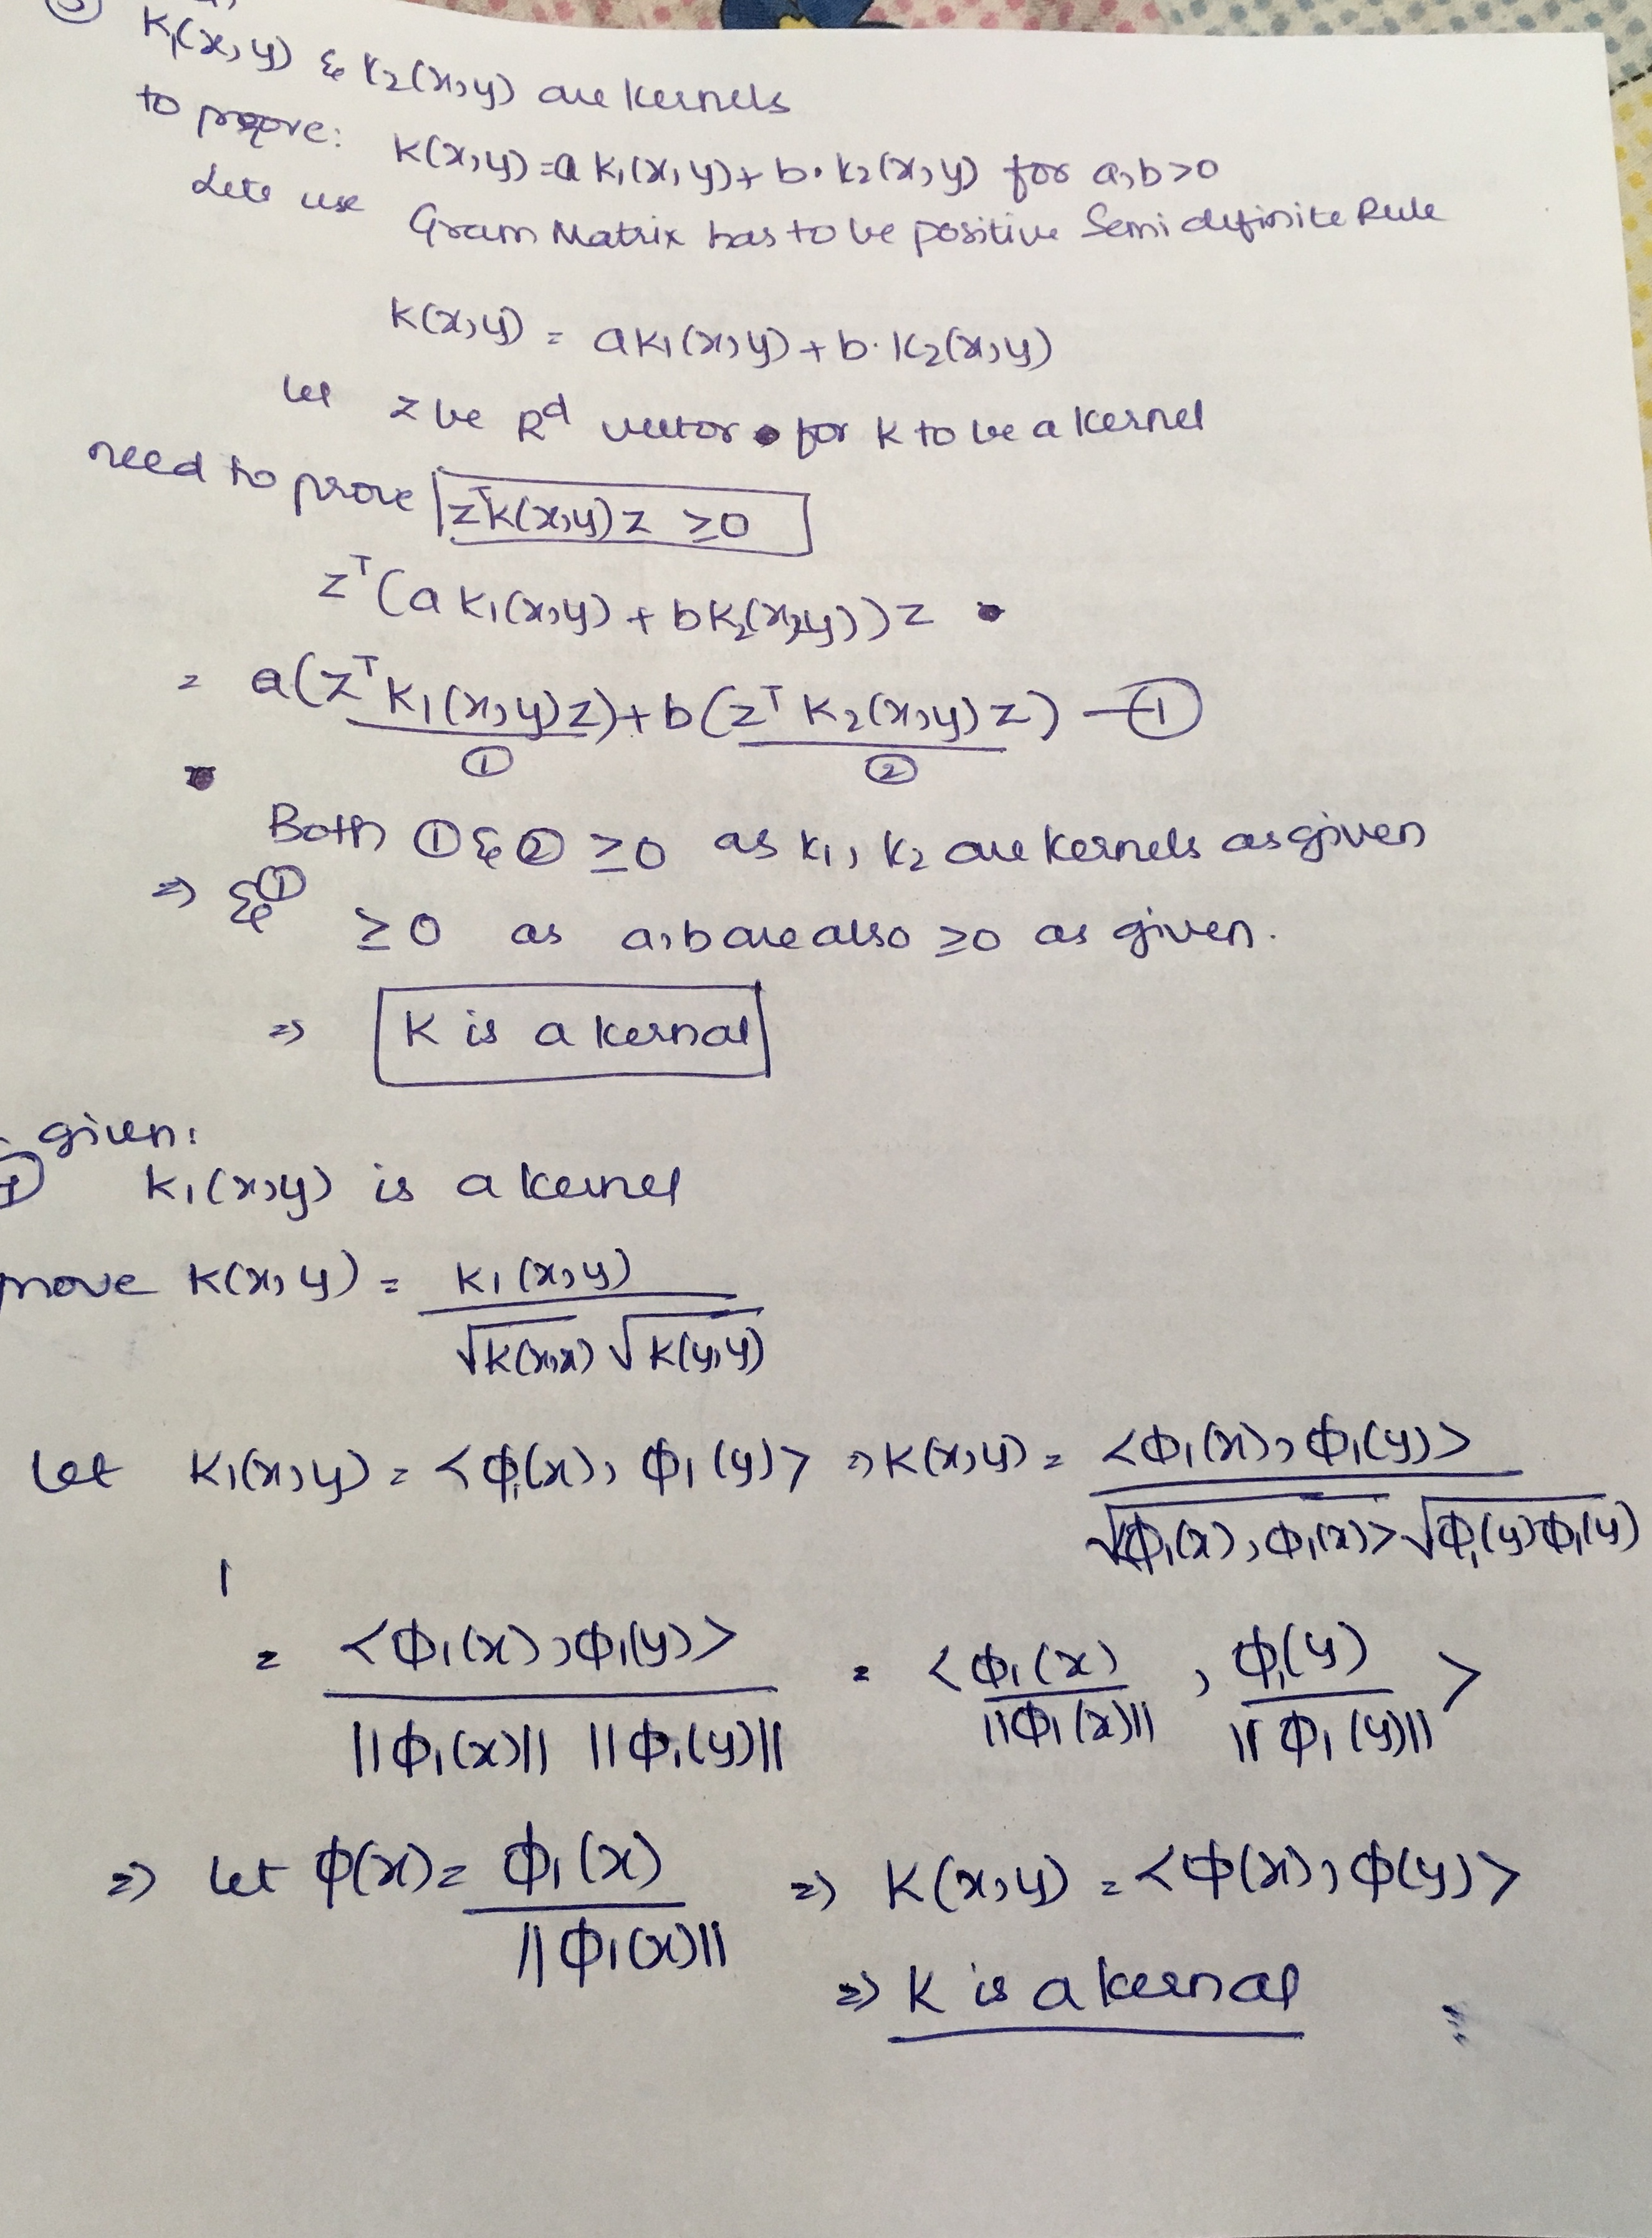 ③
K₁(x,y) & K₂(x,y) are kernels
to prove: K(x,y) = a K₁(x,y) + b. K₂(x,y) for a,b>0
Lets use Gram Matrix has to be positive Semi definite Rule
K(x,y) = a K₁(x,y) + b. K₂(x,y)
Let z be Rᵈ vector for K to be a kernel
need to prove zᵀK(x,y)z ≥0
zᵀ(a K₁(x,y) + b K₂(x,y))z
= a(zᵀK₁(x,y)z) + b(zᵀK₂(x,y)z) —①
① ②
Both ① & ② ≥0 as K₁, K₂ are kernels as given
⇒ & ① ≥0 as a,b are also ≥0 as given.
⇒ K is a kernal
given:
K₁(x,y) is a kernel
prove K(x,y) = K₁(x,y) / √K(x,x) √K(y,y)
Let K₁(x,y) = <Φ₁(x), Φ₁(y)> ⇒ K(x,y) = <Φ₁(x), Φ₁(y)> / √<Φ₁(x), Φ₁(x)> √Φ₁(y)Φ₁(y)
= <Φ₁(x), Φ₁(y)> / ||Φ₁(x)|| ||Φ₁(y)|| = <Φ₁(x) / ||Φ₁(x)||, Φ₁(y) / ||Φ₁(y)||>
⇒ let Φ(x) = Φ₁(x) / ||Φ₁(x)|| ⇒ K(x,y) = <Φ(x), Φ(y)>
⇒ K is a kernal